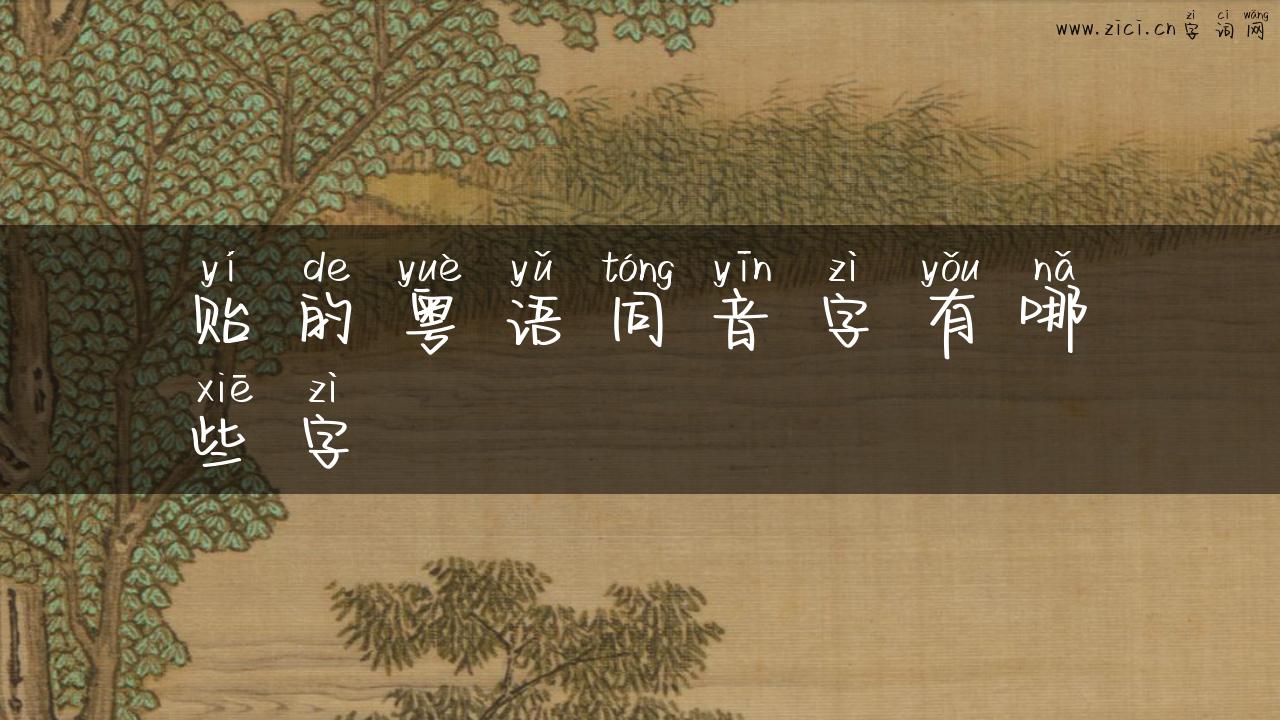 zì cí wǎng
www.zici.cn字词网
yí de yuè yǔ tóng yīn zì yǒu nǎ
贻的粤语同音字有哪
xiē zì
些字